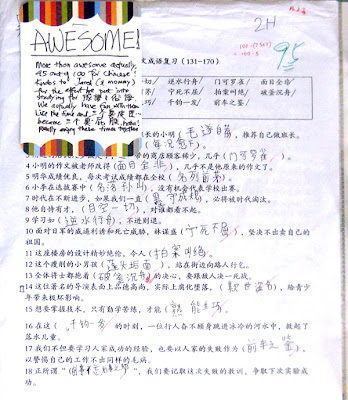 2H
95
AWESOME!
More than awesome actually.
95 out of 100 for Chinese!
Kudos to Jared (& mummy)
for the effort we put into
studying for
We actually have fun with them
Like the time and
become
Really enjoy these times together
文成语复习(131-170)
一切/ 逆水行舟/ 门可罗雀/ 面目全非/
茅/ 宁死不屈/ 拍案叫绝/ 破釜沉舟/
巧/ 千钧一发/ 前车之鉴/
长的小明(毛遂自荐),推荐自己做班长。
的商店顾客稀少,几乎(门可罗雀)。
4 小明的作文被老师改得(面目全非),几乎不是他原来的作文了。
5 明华成绩优良,每次考试成绩都在全校(名列前茅)。
6 小李在选拔赛中(名落孙山),没有机会代表学校出赛。
7 时代在不断进步,如果我们一直(墨守成规),必将被时代淘汰。
8 他自恃有才,(目空一切),对谁都看不起。
9 学习如(逆水行舟),不进则退。
10 面对日军的威逼利诱和死亡威胁,林谋盛(宁死不屈),坚决不出卖自己的
祖国。
11 这座楼房的设计精妙绝伦,令人(拍案叫绝)。
12 这个瘦削的小男孩(蓬头垢面),站在街边向路人行乞。
13 全体将士都抱着(破釜沉舟)的决心,要跟敌人决一死战。
14 这位著名的导演表面上品德高尚,实际上腐化堕落,(欺世盗名),给青少
年带来极坏影响。
15 想要掌握技术,只有勤学苦练,才能(熟能生巧)。
16 在这(千钧一发)的时刻,一位行人奋不顾身跳进冰冷的河水中,救起了
落水儿童。
17 我们不但要学习人家成功的经验,也要以人家的失败作为(前车之鉴),
以警惕自己的工作不出同样的毛病。
18 正所谓"前事不忘后事之师",我们要记取这次失败的教训,争取下次实验成
功。